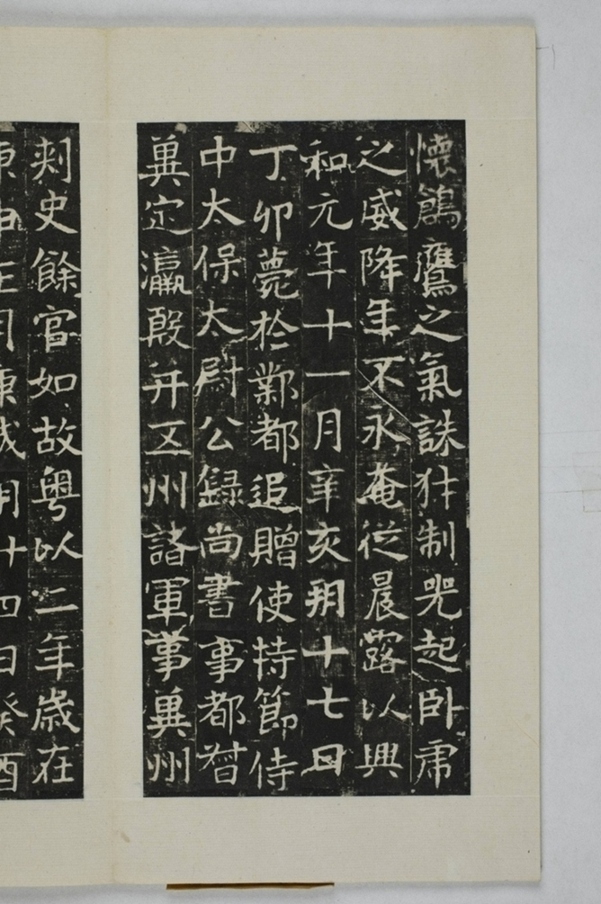 懷鷹之氣誅犲制兕起卧虎
之威降年不永奄從晨露以興
和元年十一月辛亥朔十七日
丁卯薨於鄴都追贈使持節侍
中大保大尉公録尚書事都督
冀定瀛殷并五州諸軍事冀州
刺史餘官如故粤以二年歲在
庚申正月庚戌朔廿四日癸酉